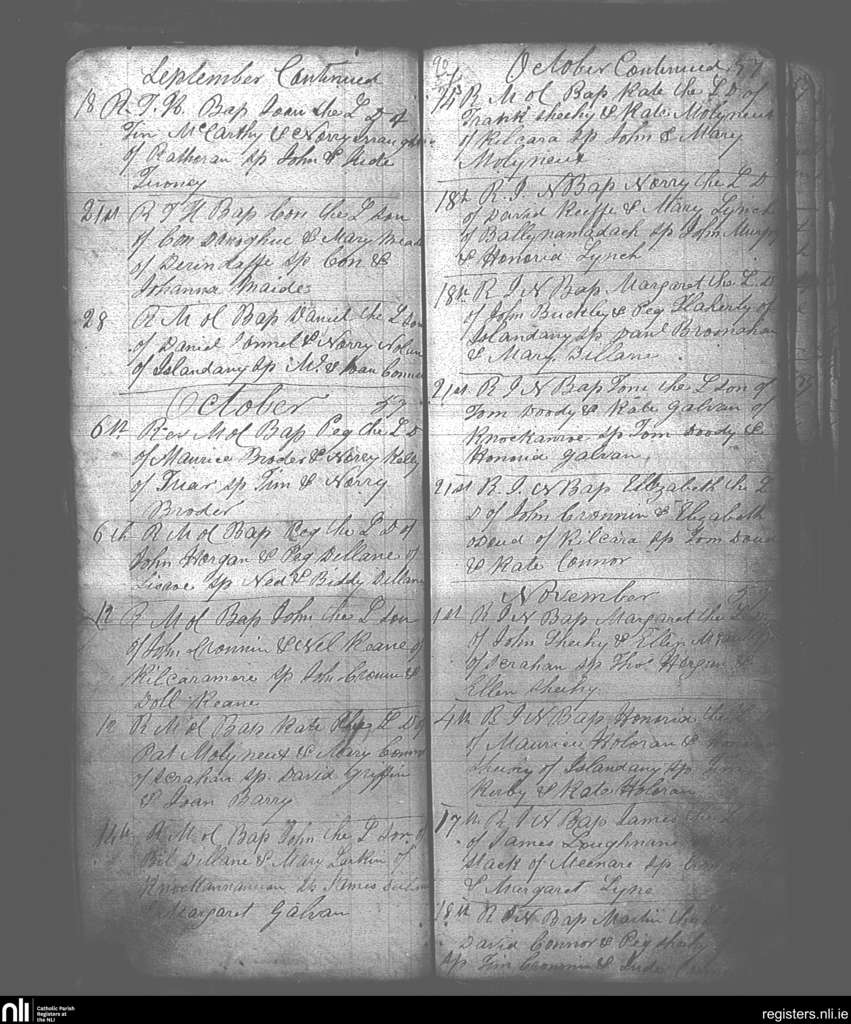 September Continued
18 R. T. N. Bap Joan the L D of
Tim McCarthy & Norry
of Ratheran Sp John & Jude
Turoney
21st R T N Bap Con the L son
of Con Donoghue & Mary
of Derindaffe Sp Con &
Johanna
28 R M ol Bap Daniel the L son
of Daniel Connel & Norry Nolan
of Islandany Sp Ml & Joan Connel
October 57
6th Rev M ol Bap Peg the L D
of Maurice Broder & Norry
of Triar Sp Tim & Norry
Broder
6th R M ol Bap Peg the L D of
John Horgan & Peg Dillane of
Lisroe Sp Ned & Biddy Dillane
12 R M ol Bap John the L son
of John Cronnin & Nel Keane of
Kilcaramore Sp John Cronin &
Doll Keane
12 R M ol Bap Kate the L D of
Pat Molyneux & Mary Connor
of Scrahan Sp David Griffin
& Joan Barry
14th R M ol Bap John the L Son of
Bil Dillane & Mary Larkin of
Sp James
& Margaret Galvan
October Continued 57
R M ol Bap Kate the L D of
Frank Sheehy & Kate Molyneux
of Kilcara Sp John & Mary
Molyneux
18th R. I. N Bap Norry the L D
of David Keeffe & Mary Lynch
of Ballynamadach Sp John Murphy
& Honorid Lynch
18th R I N Bap Margaret the L D
of John Buckley & Peg Flaherty of
Islandany Sp Danl Brosnahan
& Mary Dillane
21st R I N Bap Tom the L son of
Tom Doody & Kate Galvan of
Knockanroe Sp Tom Doody &
Honorid Galvan
21st R. I. N Bap Ellizabeth the L
D of John Cronnin & Elizabeth
of Kilcara Sp Tom
& Kate Connor
November 57
1st R I N Bap Margaret the L D
of John Sheehy & Ellen
of Scrahan Sp Thos Horgan &
Ellen Sheehy
4th R I N Bap Honorid the L
of Maurice Holoran &
of Islandany Sp
Kirby & Kate Holoran
17th R I N Bap James the L
of James Loughnane
Stack of Meenare Sp
& Margaret Lyne
18th R I N Bap Martin the L
David Connor & Peg Sheehy
Sp Tim Cronnin & Jude
nli
Catholic Parish
Registers at
the NLI
registers.nli.ie